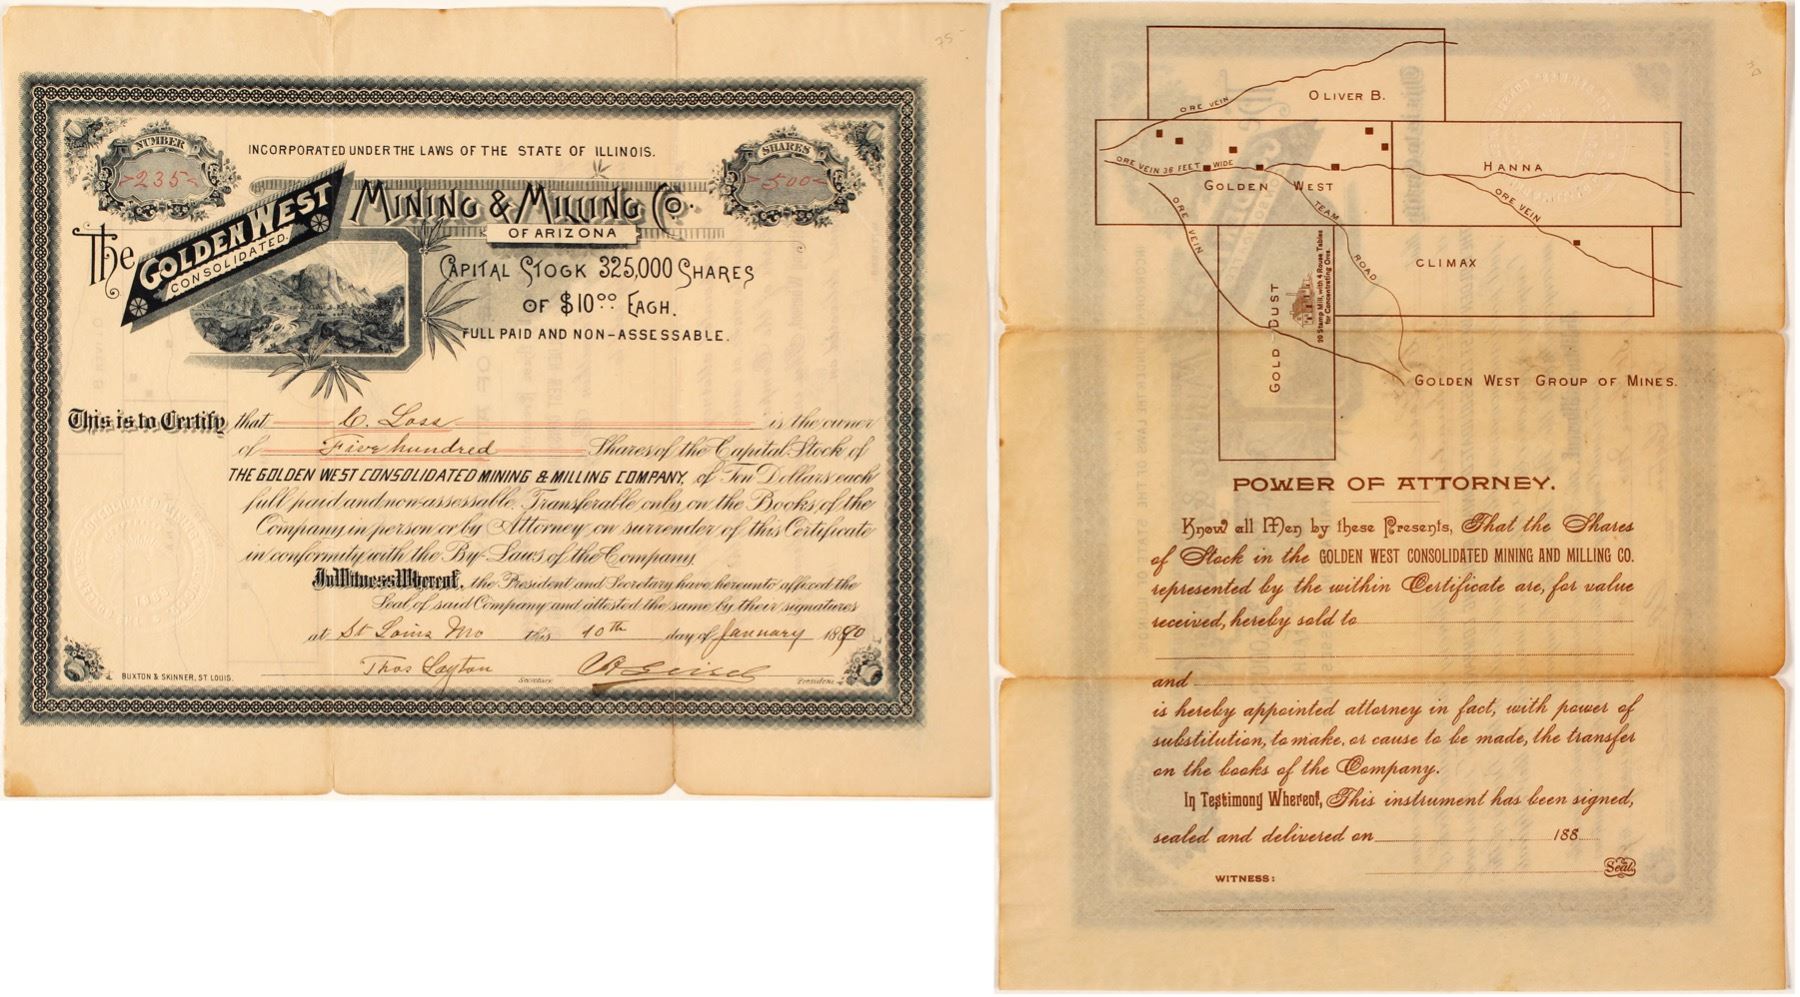 75-
NUMBER
235
INCORPORATED UNDER THE LAWS OF THE STATE OF ILLINOIS.
SHARES
500
The GOLDEN WEST CONSOLIDATED. MINING & MILLING CO.
OF ARIZONA
CAPITAL STOCK 325,000 SHARES
OF $10.00 EACH.
FULL PAID AND NON-ASSESSABLE.
This is to Certify that C. Loss is the owner
of Five hundred Shares of the Capital Stock of
THE GOLDEN WEST CONSOLIDATED MINING & MILLING COMPANY, of Ten Dollars each
full paid and non-assessable. Transferable only on the Books of the
Company in person or by Attorney on surrender of this Certificate
in conformity with the By-Laws of the Company.
In Witness Whereof, the President and Secretary have hereunto affixed the
Seal of said Company and attested the same by their signatures
at St Louis Mo this 10th day of January 1890
Thos Layton
Secretary.
President.
BUXTON & SKINNER, ST. LOUIS.
ORE VEIN
OLIVER B.
ORE VEIN 36 FEET WIDE
GOLDEN WEST
HANNA
ORE VEIN
ORE VEIN
TEAM ROAD
CLIMAX
GOLD DUST
10 Stamp Mill, with 4 Rouse Tables
for Concentrating Ores.
GOLDEN WEST GROUP OF MINES.
POWER OF ATTORNEY.
Know all Men by these Presents, That the Shares
of Stock in the GOLDEN WEST CONSOLIDATED MINING AND MILLING CO.
represented by the within Certificate are, for value
received, hereby sold to
and
is hereby appointed attorney in fact, with power of
substitution, to make, or cause to be made, the transfer
on the books of the Company.
In Testimony Whereof, This instrument has been signed,
sealed and delivered on 188
Seal.
WITNESS: